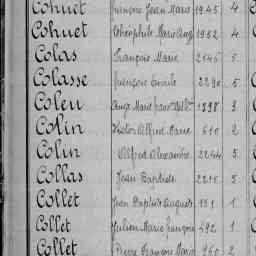 Cohuet François Jean Marie 1945 4
Cohuet Théophile Marie Ang 1952 4
Colas François Marie 2146 5
Colasse François Emile 2290 5
Coleu Ange Marie 1898 3
Colin Victor Alfred Marie 610 2
Colin Alfred Alexandre 2244 5
Collas Jean Baptiste 2215 5
Collet Jean Baptiste Auguste 131 1
Collet Julien Marie François 492 1
Collet Pierre François Marie 960 2